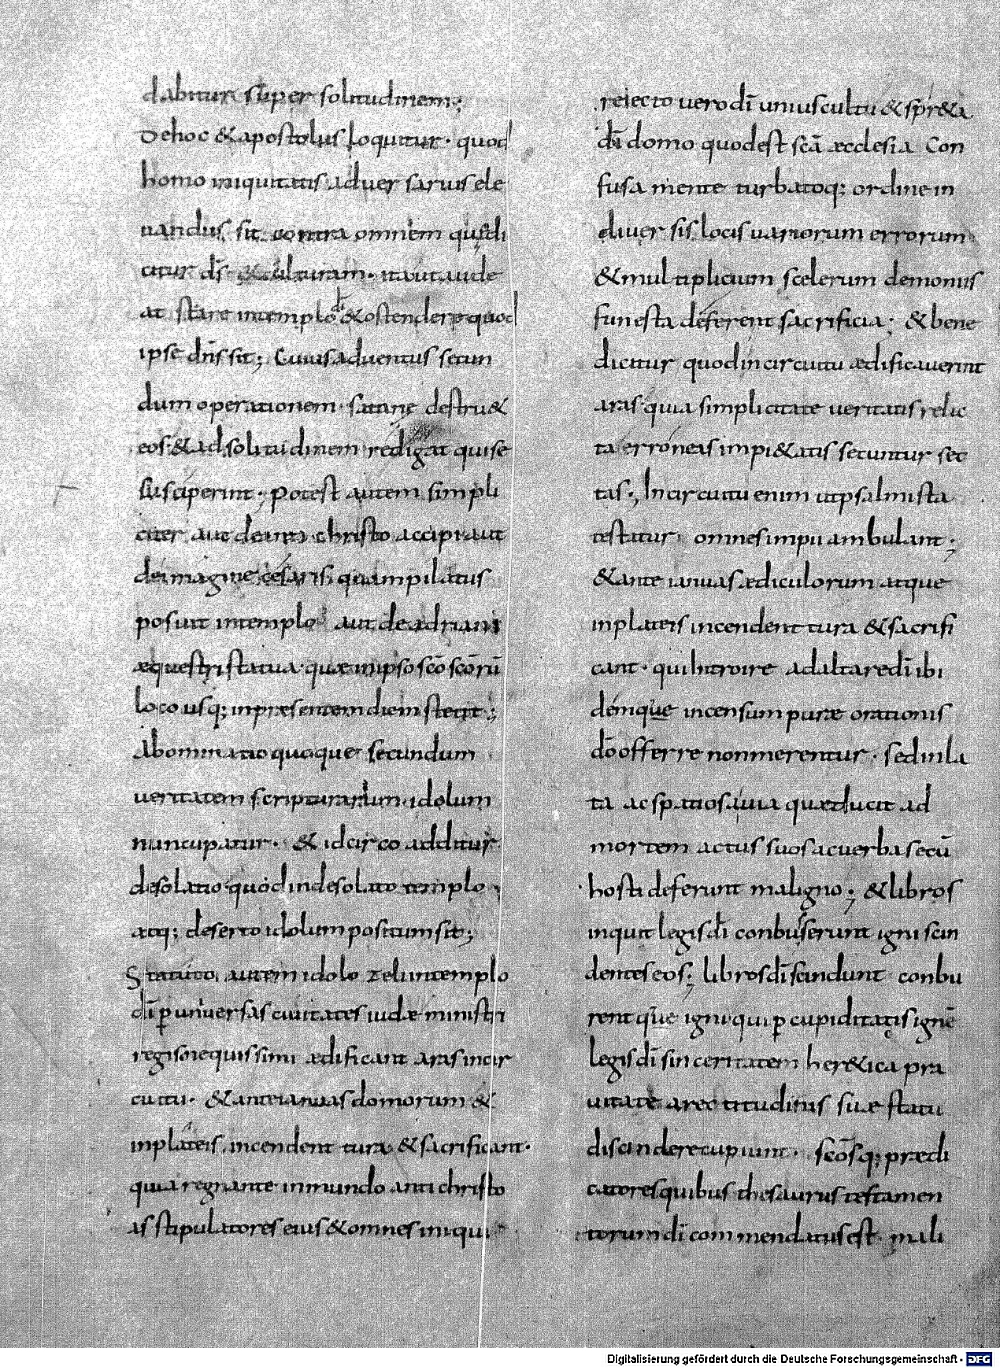 dabitur super solitudinem;
De hoc & apostolus loquitur· quod
homo iniquitatis aduersarius ele
uandus sit contra omnem qui di
citur ds̄ & ut audeat
at stare in templo dī & ostendere quod
ipse dn̄s sit; Cuius aduentus secun
dum operationem· satanę destru&
eos· & ad solitudinem redigat qui se
susceperint; Potest autem simpli
citer aut de christo accipi aut
de imagine cęsaris quam pilatus
posuit in templo aut de adriani
æquestri statua· quæ in ipso scō scōrū
loco usq; in præsentem diem stetit;
Abominatio quoque secundum
ueritatem scripturarum idolum
nuncupatur· & idcirco additur
desolatio quod in desolato templo
atq; deserto idolum positum sit;
Statuto autem idolo zeli in templo
dī ꝑ uniuersas ciuitates iudæ ministri
regis nequissimi ædificant aras in cir
cuitu· & ante ianuas domorum &
in plateis incendent tura & sacrificant·
quia regnante in mundo antichristo
astipulatores eius & omnes iniqui
reiecto uero dī unius cultu & spr&a
dī domo quod est scā æcclesia Con
fusa mente turbatoq; ordine in
diuersis locis uariorum errorum
& multiplicium scelerum demoniis
funesta deferent sacrificia; & bene
dicitur quod in circuitu ædificauerint
aras quia simplicitate ueritatis relic
ta erroneas impi&atis secuntur sec
tas; In circuitu enim ut psalmista
testatur omnes impii ambulant;
& ante ianuas ædiculorum atque
in plateis incendent tura & sacrifi
cant· qui introire ad altare dī ibi
demque incensum puræ orationis
dō offerre non merentur· sed in la
ta ac spatiosa uia quæ ducit ad
mortem actus suos ac uerba secū
hosti deferunt maligno; & libros
inquit legis dī conbusserunt igni scin
dentes eos; libros dī scindunt conbu
rentque igni qui ꝑ cupiditatis ignē
legis dī sinceritatem her&ica pra
uitate a rectitudinis suæ statu
discindere cupiunt· scōsq; prædi
catores quibus thesaurus testamen
torum dī commendatus est· mali
Digitalisierung gefördert durch die Deutsche Forschungsgemeinschaft - DFG